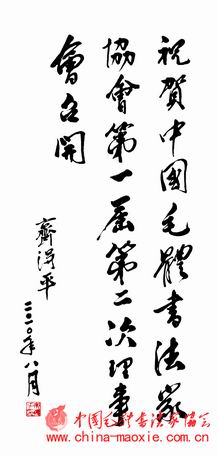 祝賀中國毛體書法家
協會第一屆第二次理事
會召開
齊得平
二〇一〇年八月
中国毛体书法家协会
www.china-maoxie.com.cn